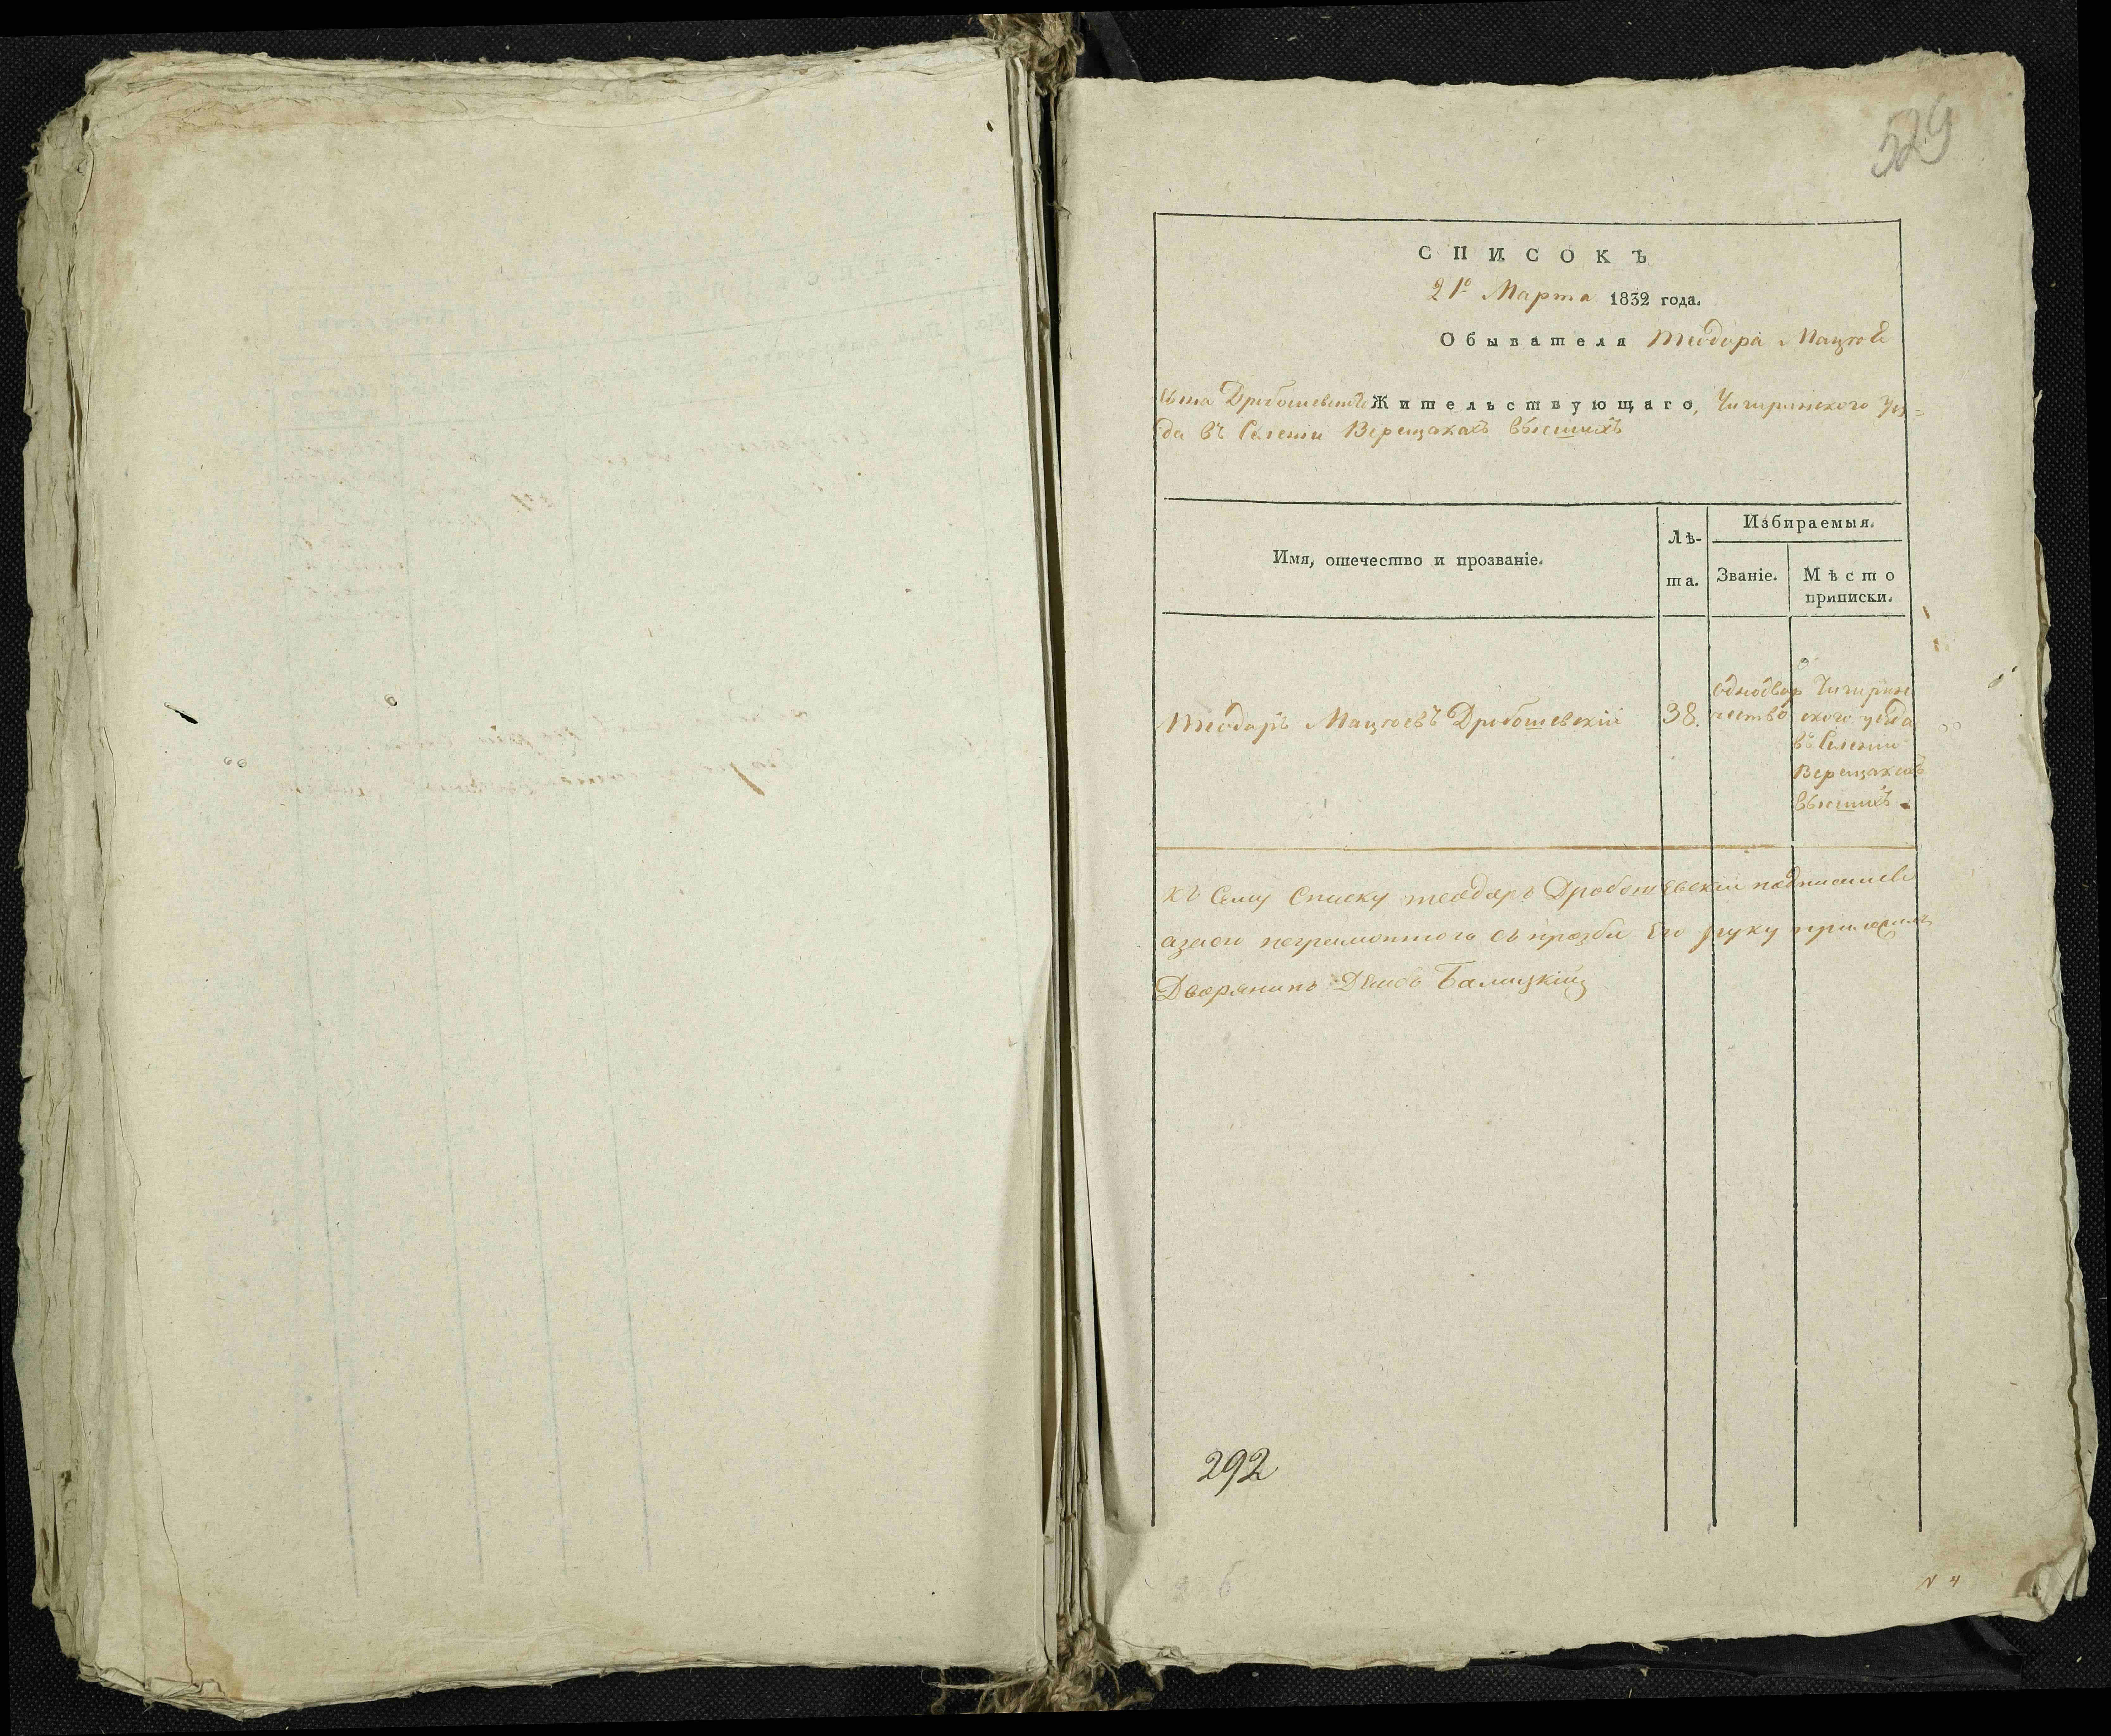 529
СПИСОКЪ
21º Марта 1832 года.
Обывателя Теодора Мацѣова
сына Дробошевскаго Жительствующаго, Чигиринскаго Уѣз=
да въ Селеніи Верещакахъ Высшихъ
Имя, отечество и прозваніе.
Лѣ-
та.
Избираемыя.
Званіе.
Мѣсто
приписки.
Теодоръ Мацѣевъ Дробошевскій
38.
однодвор
чество
Чигирин
ского уѣзда
въ Селеніи
Верещакахъ
высшихъ.
Къ Сему Списку теодоръ Дробошевскій подписался
а за его неграмотного съ прозбы Его руку приложилъ
Дворянинъ Балицкій
292
6
N 4